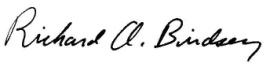 Richard A. Birdsey